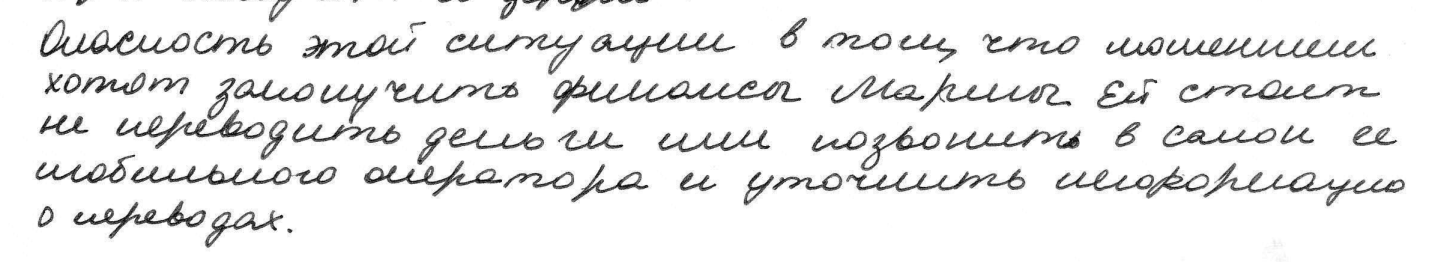 Опасность этой ситуации в том, что мошенники
хотят заполучить финансы Марины. Ей стоит
не переводить деньги или позвонить в салон ее
мобильного оператора и уточнить информацию
о переводах.